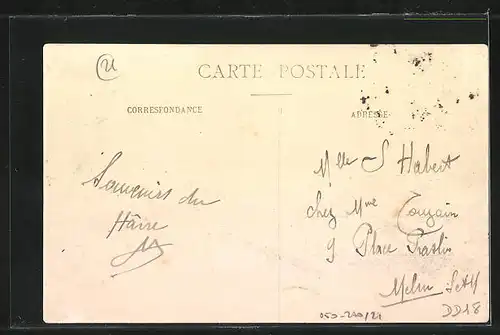 CARTE POSTALE
CORRESPONDANCE
ADRESSE
Souvenirs du
Hâvre
Mlle S Habert
chez Mme
9 Place Praslin
Melun S&M
050-240/21
DD18